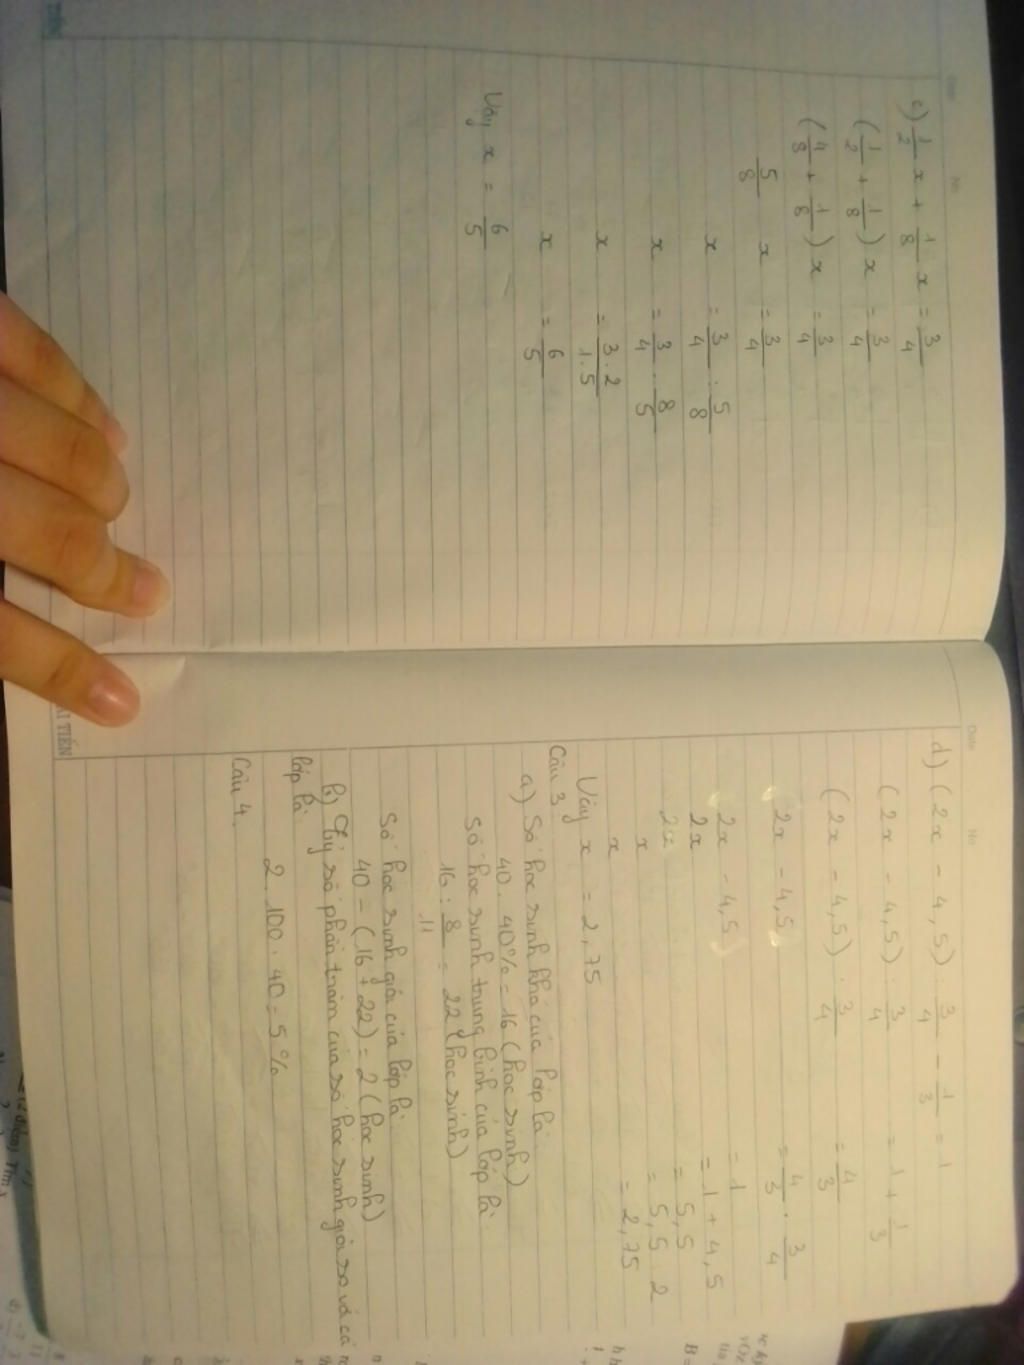 c) 1/2 x + 1/8 x = 3/4
(1/2 + 1/8) x = 3/4
(4/8 + 1/8) x = 3/4
5/8 x = 3/4
x = 3/4 : 5/8
x = 3/4 . 8/5
x = 3.2/1.5
x = 6/5
Vậy x = 6/5
Date No
d) (2x - 4,5) : 3/4 - 1/3 = 1
(2x - 4,5) : 3/4 = 1 + 1/3
(2x - 4,5) : 3/4 = 4/3
2x - 4,5 = 4/3 . 3/4
2x - 4,5 = 1
2x = 1 + 4,5
2x = 5,5
x = 5,5 : 2
x = 2,75
Vậy x = 2,75
Câu 3.
a) Số học sinh khá của lớp là:
40 . 40% = 16 (học sinh)
Số học sinh trung bình của lớp là:
16 : 8/11 = 22 (học sinh)
Số học sinh giỏi của lớp là:
40 - (16 + 22) = 2 (học sinh)
b) Tỷ số phần trăm của số học sinh giỏi so với cả
lớp là:
2 . 100 : 40 = 5 %
Câu 4.
ẢI TIẾN